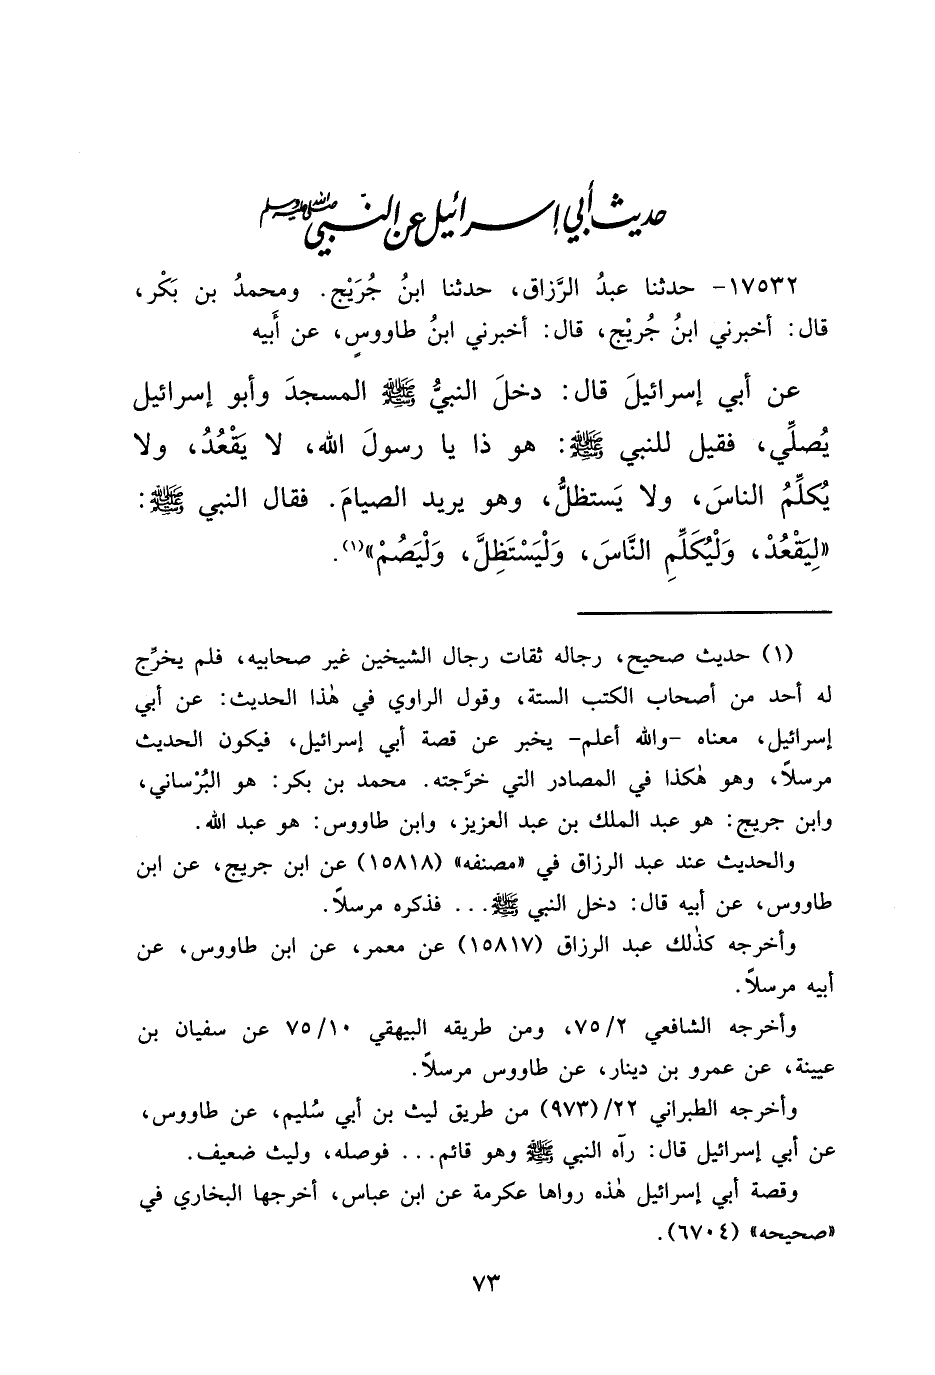 حديث أبي إسرائيل عن النبي صلى الله عليه وسلم
١٧٥٣٢- حدثنا عبدُ الرَّزاق، حدثنا ابنُ جُرَيْج. ومحمدُ بن بَكْر،
قال: أخبرني ابنُ جُريْج، قال: أخبرني ابنُ طاووسٍ، عن أَبيه
عن أبي إسرائيلَ قال: دخلَ النبيُّ ﷺ المسجدَ وأبو إسرائيل
يُصلِّي، فقيل للنبي ﷺ: هو ذا يا رسولَ الله، لا يَقْعُدُ، ولا
يُكلِّمُ الناسَ، ولا يَستظلُّ، وهو يريد الصيامَ. فقال النبي ﷺ:
«لِيَقْعُدْ، وَلْيُكَلِّمِ النَّاسَ، وَلْيَسْتَظِلَّ، وَلْيَصُمْ»(١).
(١) حديث صحيح، رجاله ثقات رجال الشيخين غير صحابيه، فلم يخرِّج
له أحد من أصحاب الكتب الستة، وقول الراوي في هٰذا الحديث: عن أبي
إسرائيل، معناه -والله أعلم- يخبر عن قصة أبي إسرائيل، فيكون الحديث
مرسلاً، وهو هٰكذا في المصادر التي خرَّجته. محمد بن بكر: هو البُرْساني،
وابن جريج: هو عبد الملك بن عبد العزيز، وابن طاووس: هو عبد الله.
والحديث عند عبد الرزاق في «مصنفه» (١٥٨١٨) عن ابن جريج، عن ابن
طاووس، عن أبيه قال: دخل النبي ﷺ... فذكره مرسلاً.
وأخرجه كذٰلك عبد الرزاق (١٥٨١٧) عن معمر، عن ابن طاووس، عن
أبيه مرسلاً.
وأخرجه الشافعي ٧٥/٢، ومن طريقه البيهقي ٧٥/١٠ عن سفيان بن
عيينة، عن عمرو بن دينار، عن طاووس مرسلاً.
وأخرجه الطبراني ٢٢/(٩٧٣) من طريق ليث بن أبي سُليم، عن طاووس،
عن أبي إسرائيل قال: رآه النبي ﷺ وهو قائم... فوصله، وليث ضعيف.
وقصة أبي إسرائيل هٰذه رواها عكرمة عن ابن عباس، أخرجها البخاري في
«صحيحه» (٦٧٠٤).
٧٣